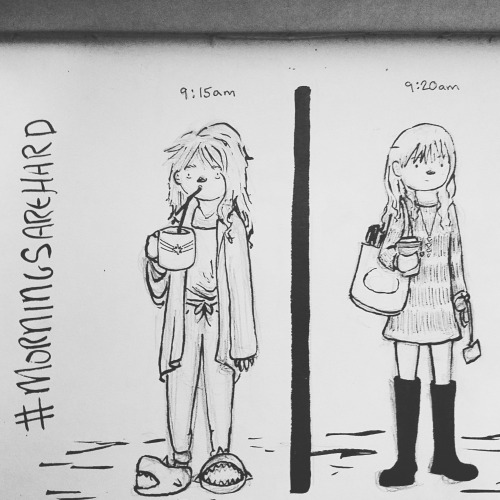 #MORNINGSAREHARD
9:15am
9:20am